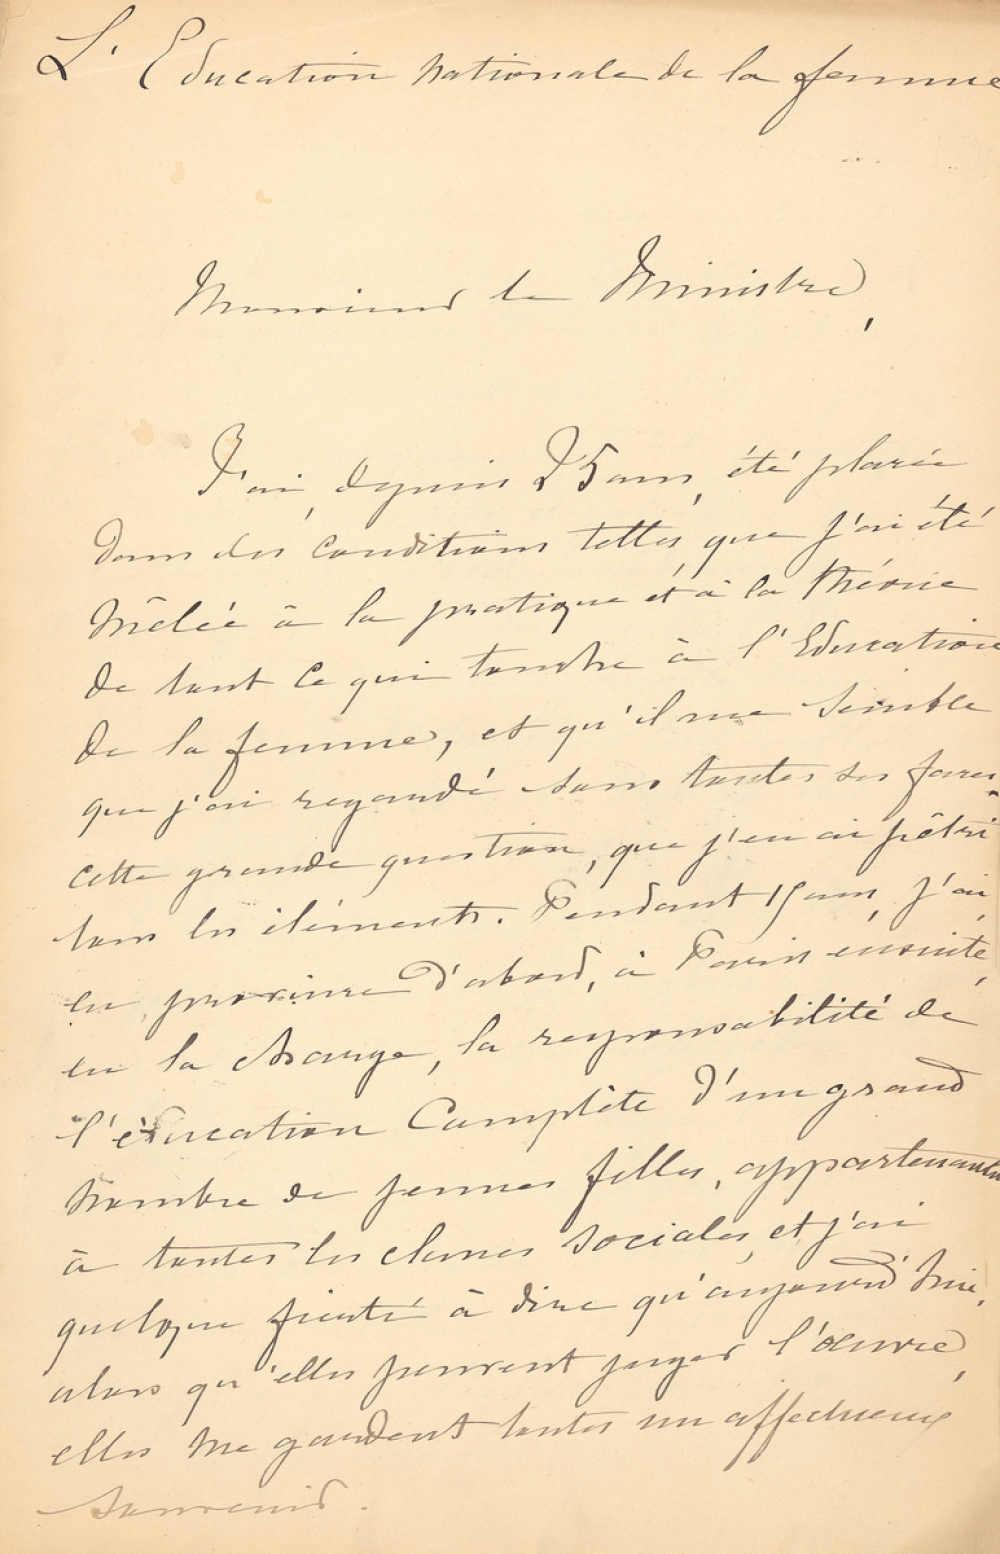 L'Education nationale de la femme
Monsieur le Ministre,
J'ai, depuis 25 ans, été placée
dans des conditions telles, que j'ai été
mêlée à la pratique et à la théorie
de tout ce qui touche à l'Education
de la femme, et qu'il me semble
que j'ai regardé sous toutes ses faces
cette grande question, que j'en ai pétri
tous les éléments. Pendant 15 ans, j'ai,
en province d'abord, à Paris ensuite,
eu la charge, la responsabilité de
l'éducation complète d'un grand
nombre de jeunes filles, appartenant
à toutes les classes sociales, et j'ai
quelque fierté à dire qu'aujourd'hui,
alors qu'elles peuvent juger l'œuvre,
elles me gardent toutes un affectueux
souvenir.